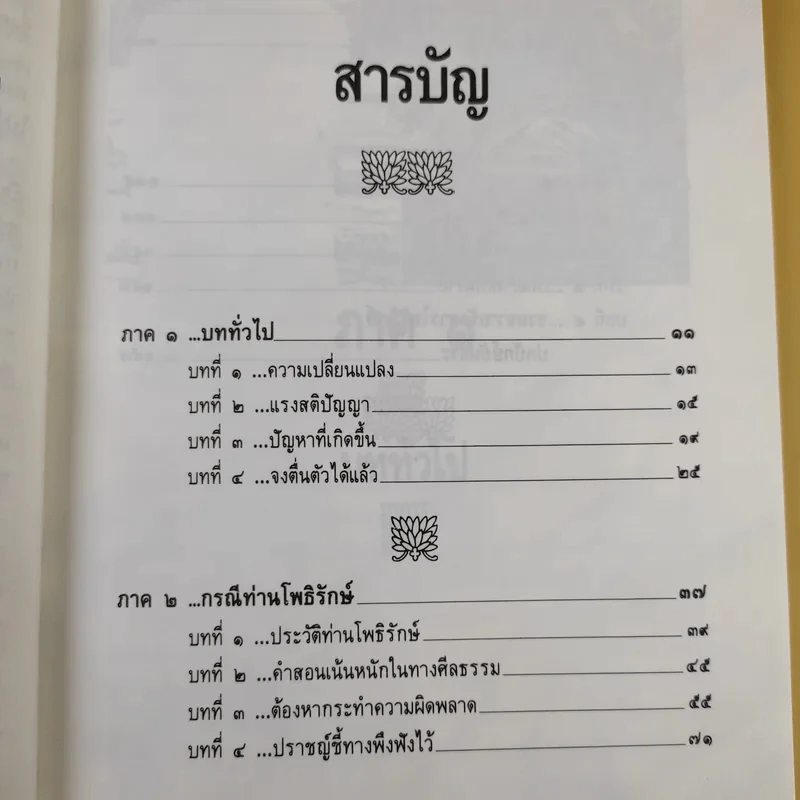 สารบัญ
ภาค ๑ ...บททั่วไป ๑๑
บทที่ ๑ ...ความเปลี่ยนแปลง ๑๓
บทที่ ๒ ...แรงสติปัญญา ๑๕
บทที่ ๓ ...ปัญหาที่เกิดขึ้น ๑๙
บทที่ ๔ ...จงตื่นตัวได้แล้ว ๒๕
ภาค ๒ ...กรณีท่านโพธิรักษ์ ๓๗
บทที่ ๑ ...ประวัติท่านโพธิรักษ์ ๓๙
บทที่ ๒ ...คำสอนเน้นหนักในทางศีลธรรม ๔๕
บทที่ ๓ ...ต้องหากระทำความผิดพลาด ๕๕
บทที่ ๔ ...ปราชญ์ชี้ทางพึงฟังไว้ ๗๑